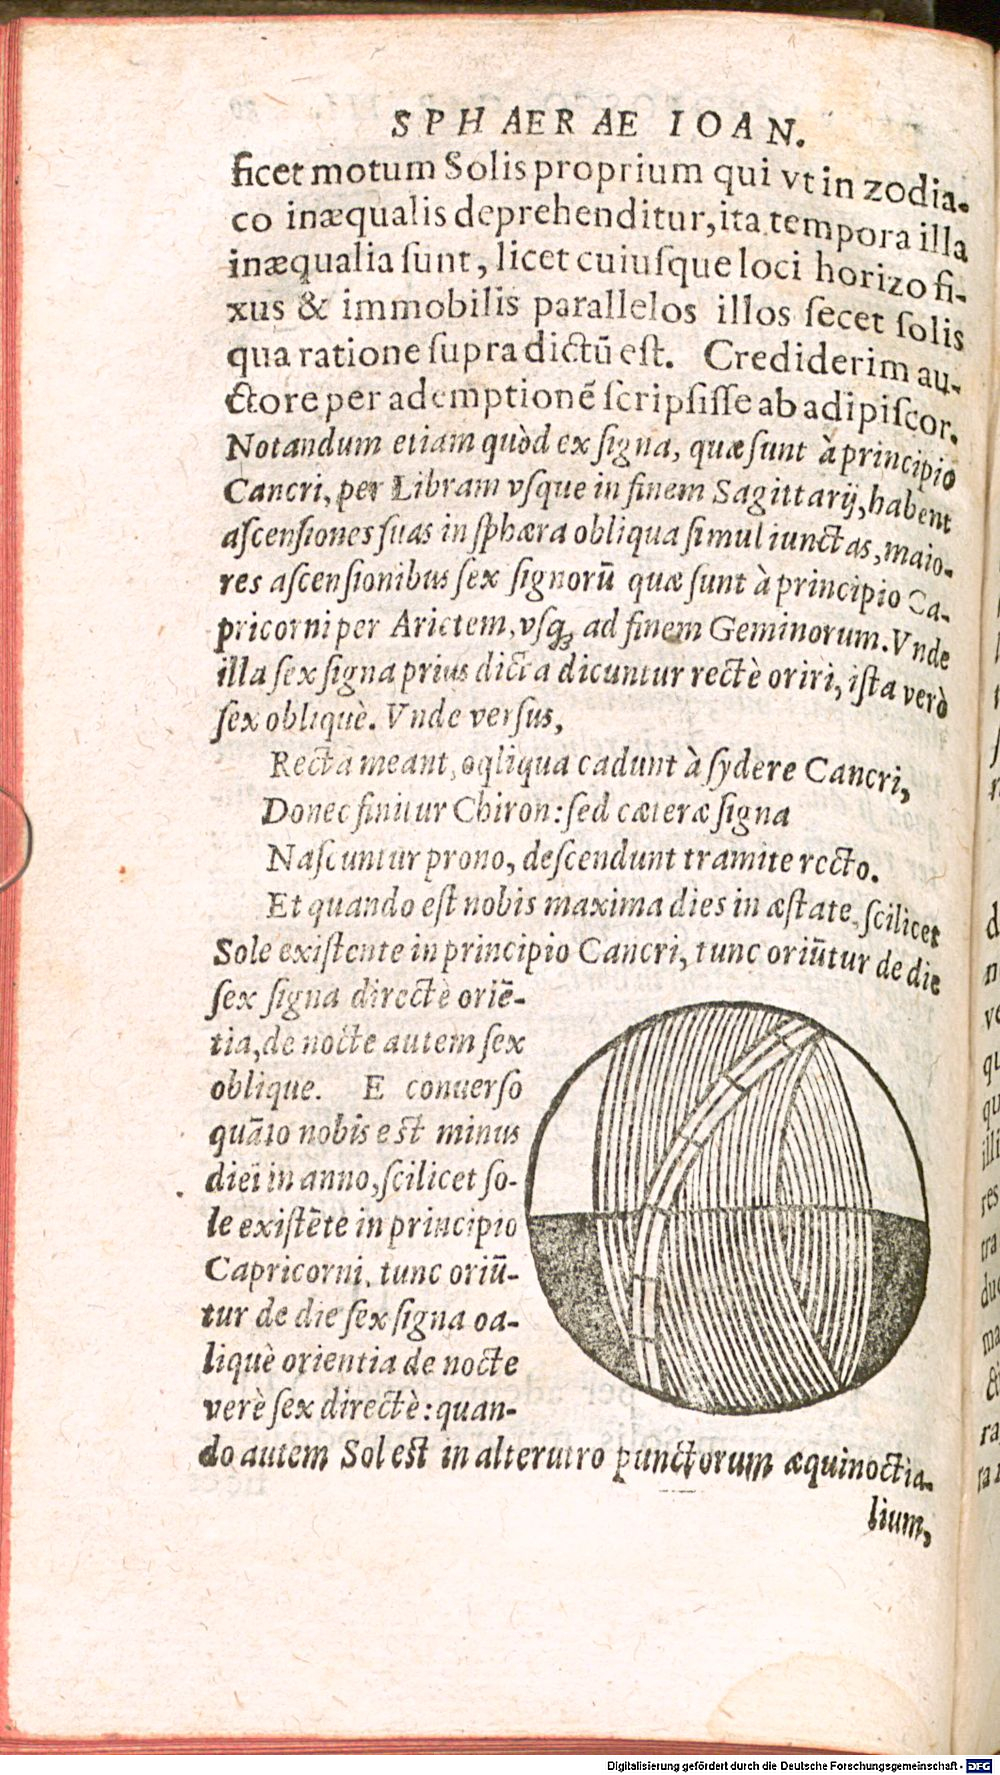 SPHAERAE IOAN.
ficet motum Solis proprium qui vt in zodia-
co inæqualis deprehenditur, ita tempora illa
inæqualia sunt, licet cuiusque loci horizo fi-
xus & immobilis parallelos illos secet solis
qua ratione supra dictũ est. Crediderim au-
ctore per ademptionẽ scripsisse ab adipiscor.
Notandum etiam quòd ex signa, quæ sunt à principio
Cancri, per Libram vsque in finem Sagittarij, habent
ascensiones suas in sphæra obliqua simul iunctas, maio-
res ascensionibus sex signorũ quæ sunt à principio Ca-
pricorni per Arietem, vsq; ad finem Geminorum. Vnde
illa sex signa prius dicta dicuntur rectè oriri, ista verò
sex obliquè. Vnde versus,
Recta meant, oqliqua cadunt à sydere Cancri,
Donec finitur Chiron: sed cæteræ signa
Nascuntur prono, descendunt tramite recto.
Et quando est nobis maxima dies in æstate, scilicet
Sole existente in principio Cancri, tunc oriũtur de die
sex signa directè oriẽ-
tia, de nocte autem sex
oblique. E conuerso
quãto nobis est minus
diei in anno, scilicet so-
le existẽte in principio
Capricorni, tunc oriũ-
tur de die sex signa oa-
liquè orientia de nocte
verè sex directè: quan-
do autem Sol est in alterutro punctorum æquinoctia-
lium,
Digitalisierung gefördert durch die Deutsche Forschungsgemeinschaft - DFG